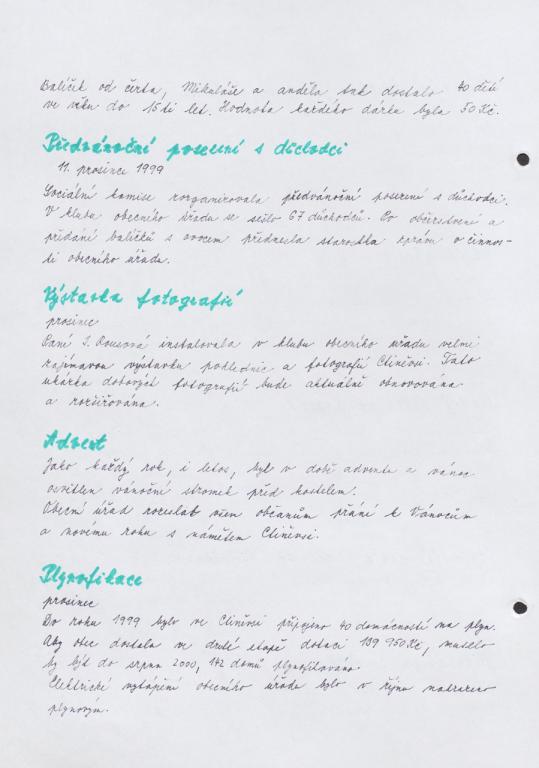 Balíček od čerta, Mikuláše a anděla tak dostalo 40 dětí
ve věku do 15ti let. Hodnota každého dárku byla 50 Kč.
Předvánoční posezení s důchodci
11. prosince 1999
Sociální komise zorganizovala předvánoční posezení s důchodci.
V klubu obecního úřadu se sešlo 67 důchodců. Po občerstvení a
předání balíčků s ovocem přednesla starostka zprávu o činnos-
ti obecního úřadu.
Výstavka fotografií
prosinec
Paní I. instalovala v klubu obecního úřadu velmi
zajímavou výstavku pohlednic a fotografií Ctiněvsi. Tato
ukázka dobových fotografií bude aktuálně obnovována
a rozšiřována.
Advent
Jako každý rok, i letos, byl v době adventu a vánoc
osvětlen vánoční stromek před kostelem.
Obecní úřad rozeslal všem občanům přání k Vánocům
a novému roku s námětem Ctiněvsi.
Plynofikace
prosinec
Do roku 1999 bylo ve Ctiněvsi připojeno 40 domácností na plyn.
Aby obec dostala ve druhé etapě dotaci 139 950 Kč, muselo
by být do srpna 2000, 142 domů plynofikováno.
Elektrické vytápění obecního úřadu bylo v říjnu nahrazeno
plynovým.